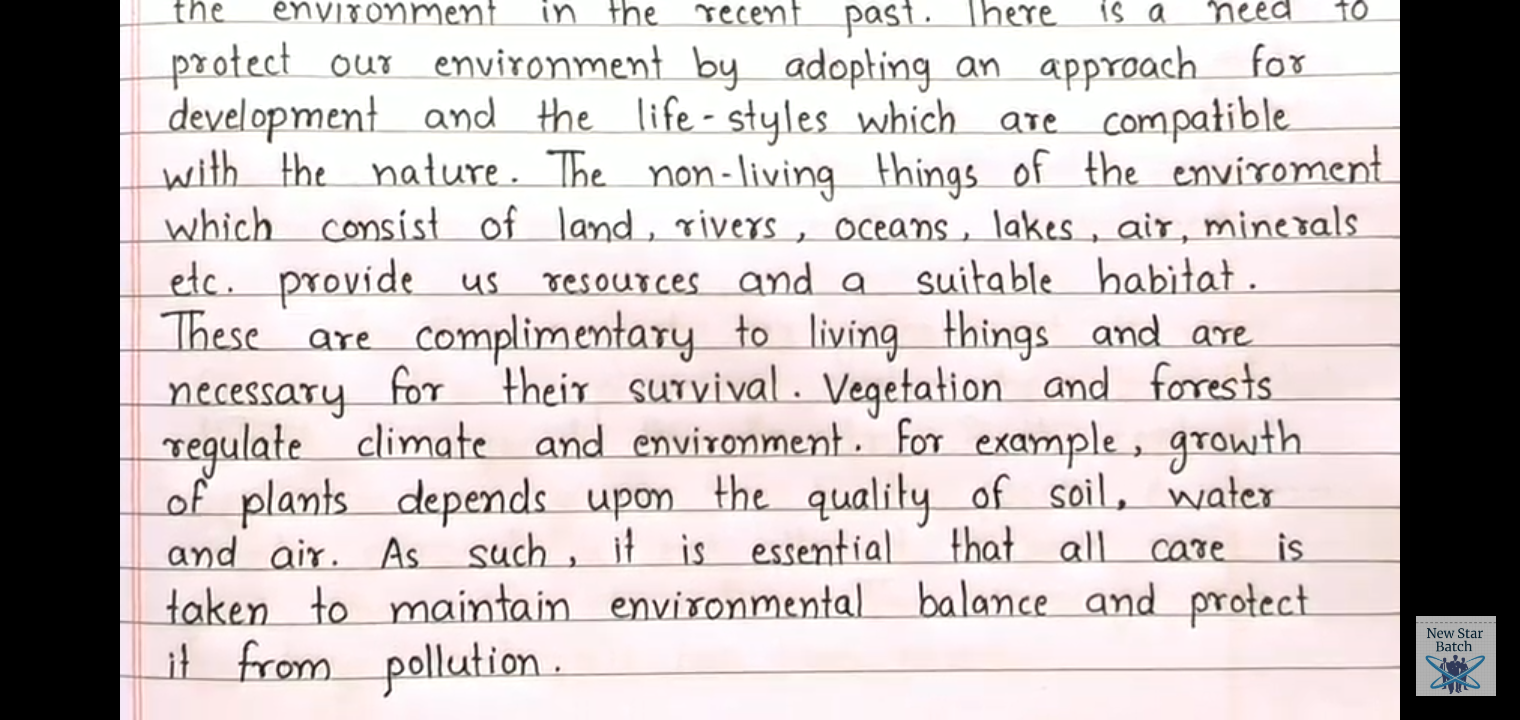 the environment in the recent past. There is a need to
protect our environment by adopting an approach for
development and the life-styles which are compatible
with the nature. The non-living things of the enviroment
which consist of land, rivers, oceans, lakes, air, minerals
etc. provide us resources and a suitable habitat.
These are complimentary to living things and are
necessary for their survival. Vegetation and forests
regulate climate and environment. For example, growth
of plants depends upon the quality of soil, water
and air. As such, it is essential that all care is
taken to maintain environmental balance and protect
it from pollution.
New Star
Batch